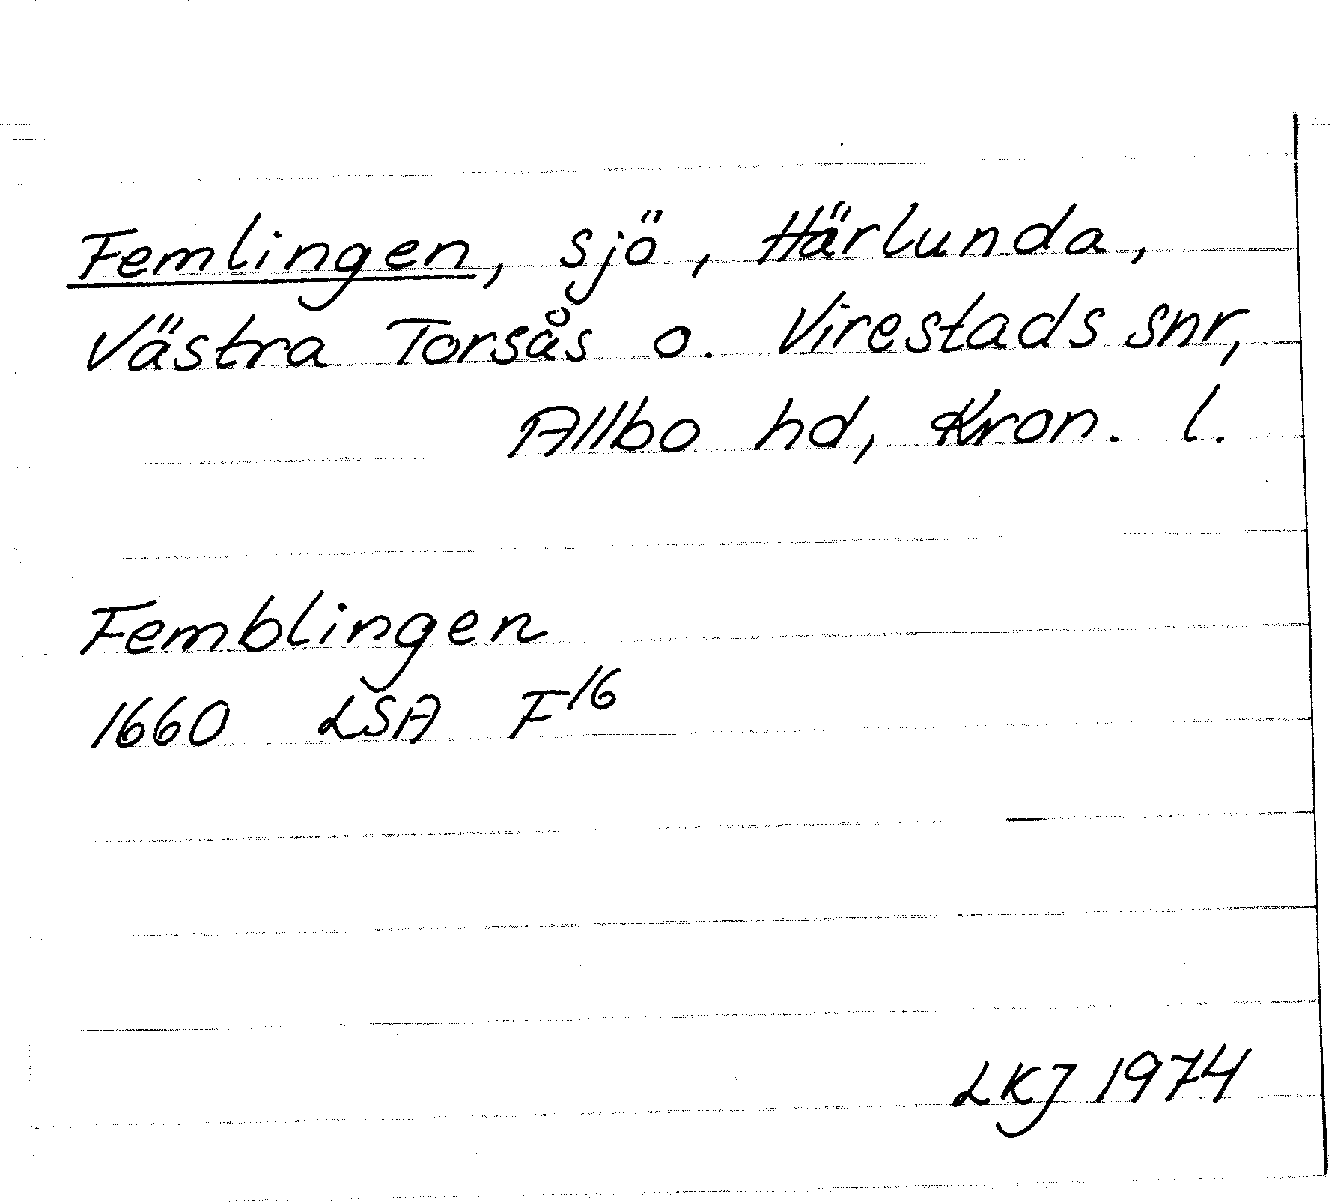 Femlingen, sjö, Härlunda,
Västra Torsås o. Virestads snr,
Allbo hd, Kron. l.
Femblingen
1660 LSA F16
LKJ 1974